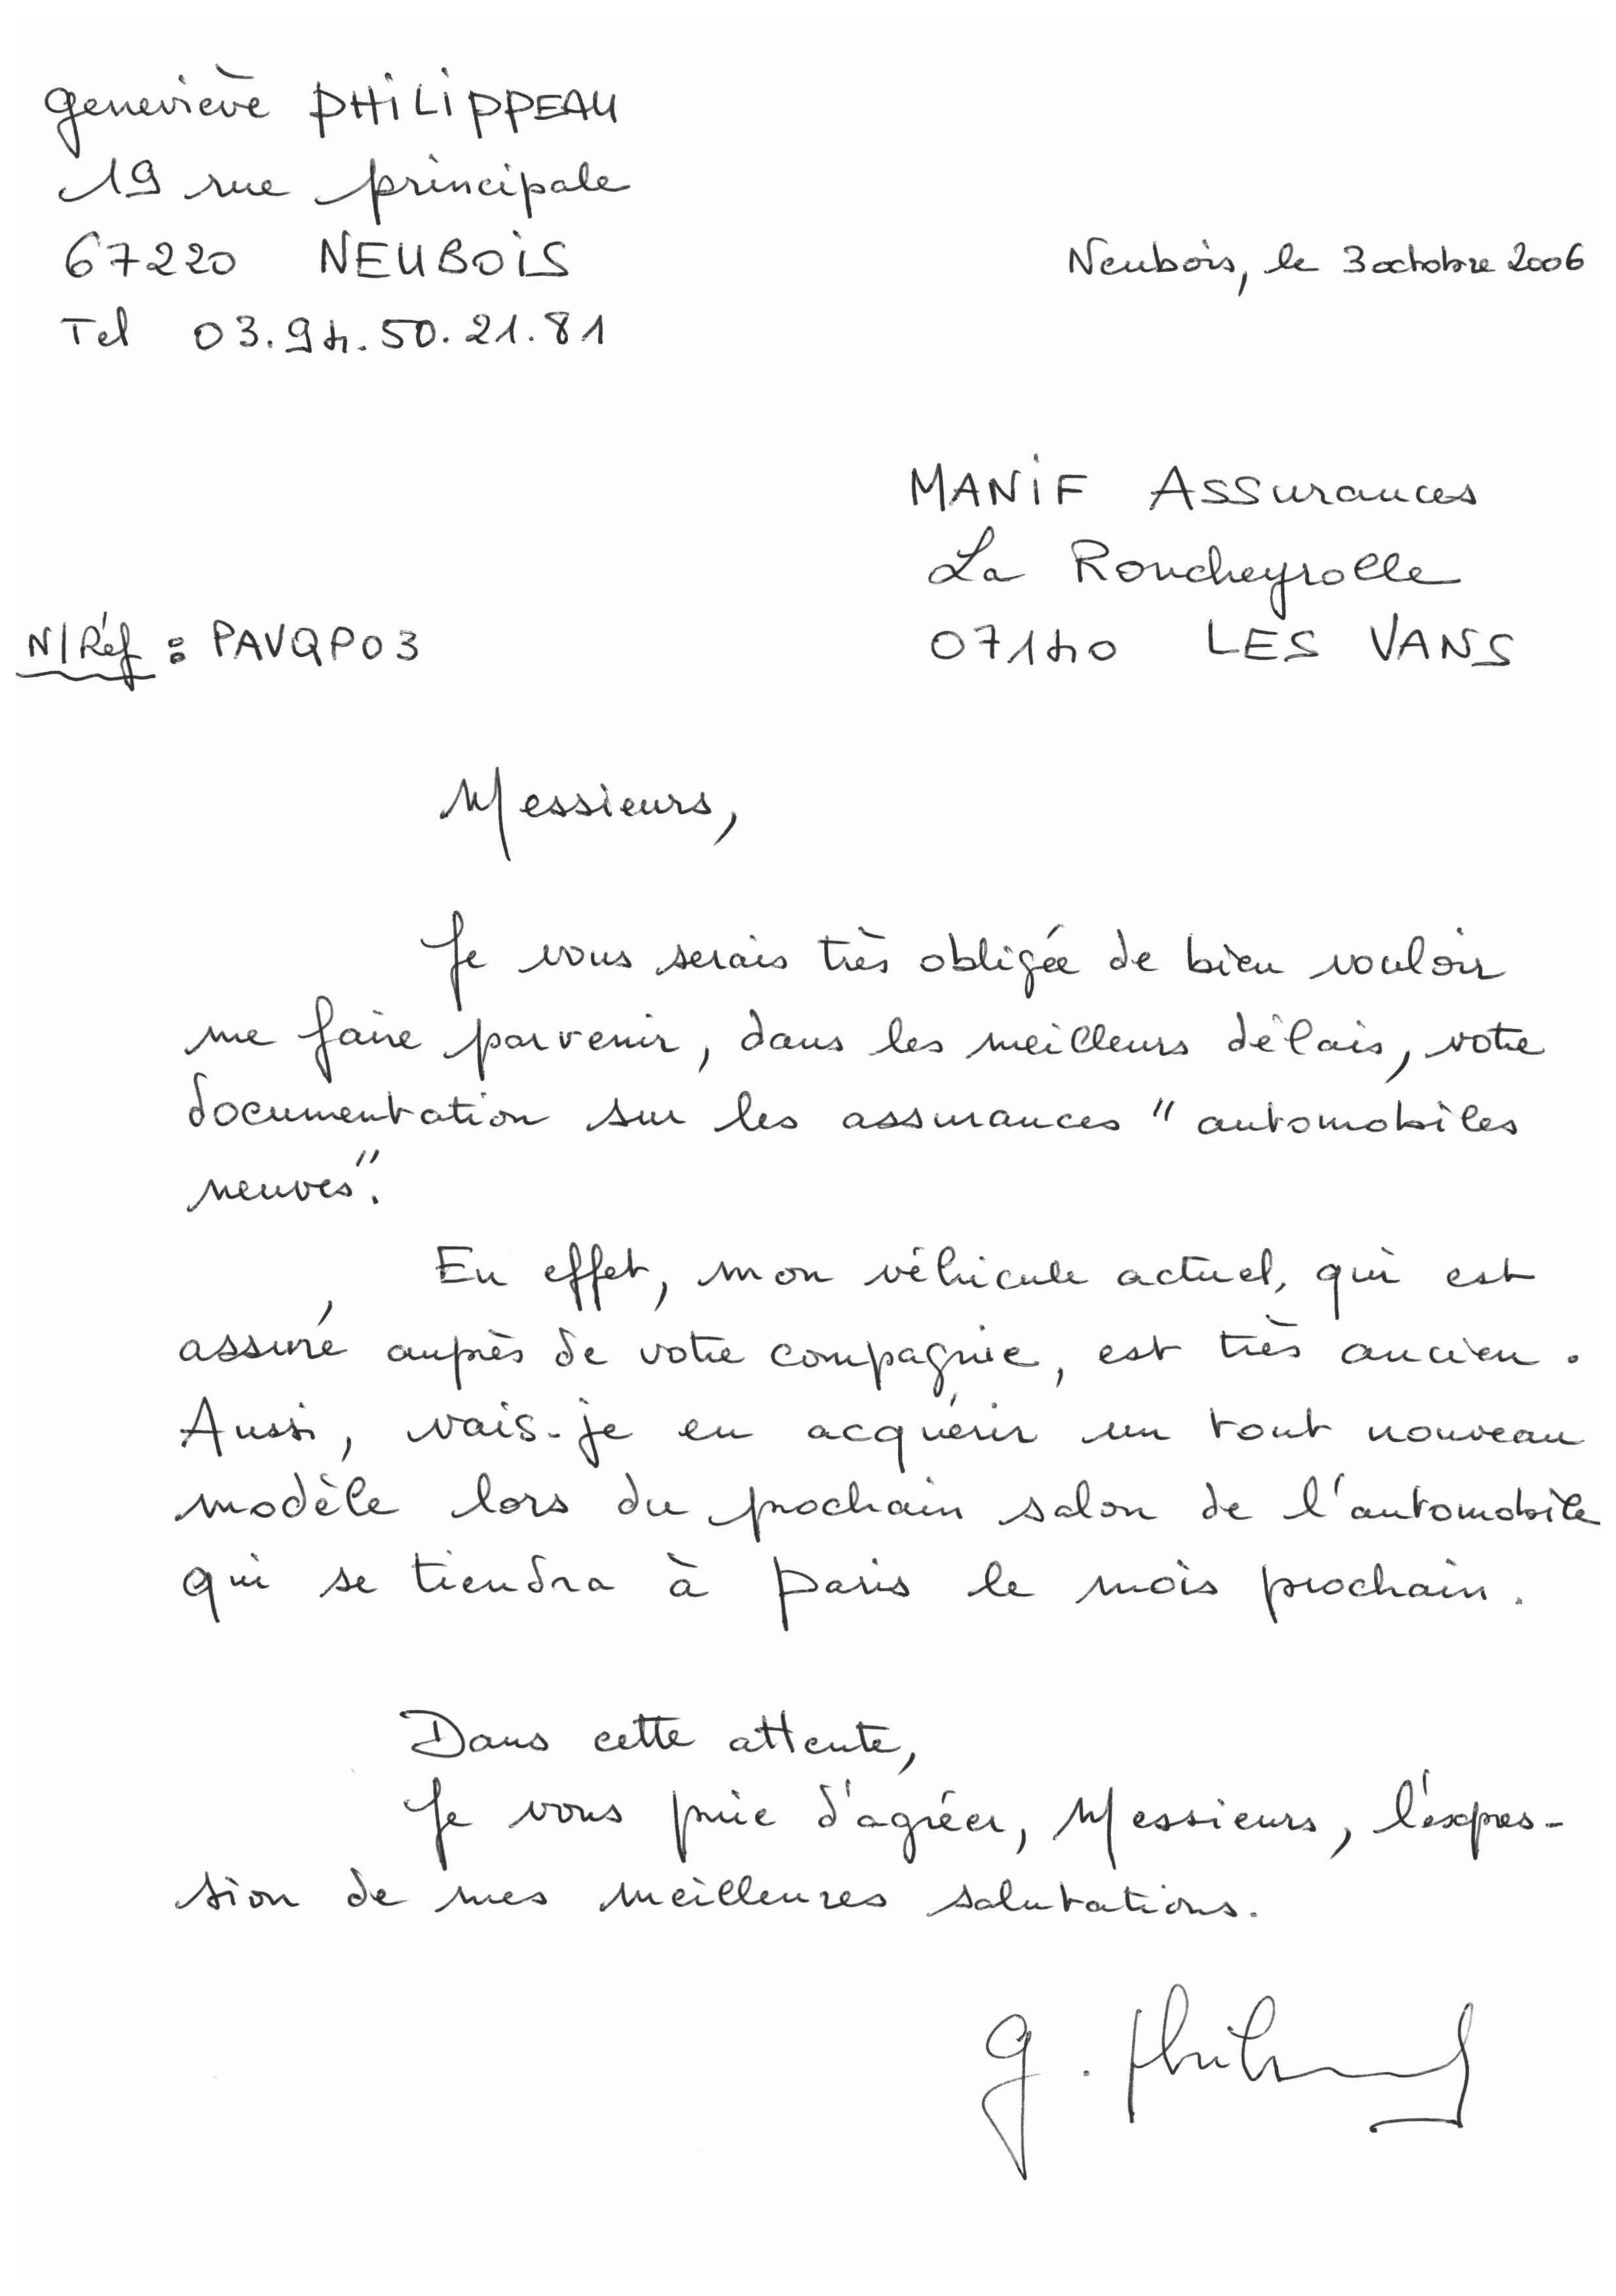 Geneviève PHILIPPEAU
19 rue principale
67220 NEUBOIS
Tel 03.94.50.21.81
Neubois, le 3 octobre 2006
MANIF Assurances
La Roucheyrolle
07140 LES VANS
N/Réf : PAVQP03
Messieurs,
Je vous serais très obligée de bien vouloir
me faire parvenir, dans les meilleurs délais, votre
documentation sur les assurances "automobiles
neuves".
En effet, mon véhicule actuel, qui est
assuré auprès de votre compagnie, est très ancien.
Aussi, vais-je en acquérir un tout nouveau
modèle lors du prochain salon de l'automobile
qui se tiendra à Paris le mois prochain.
Dans cette attente,
Je vous prie d'agréer, Messieurs, l'expres-
sion de mes meilleures salutations.
G.